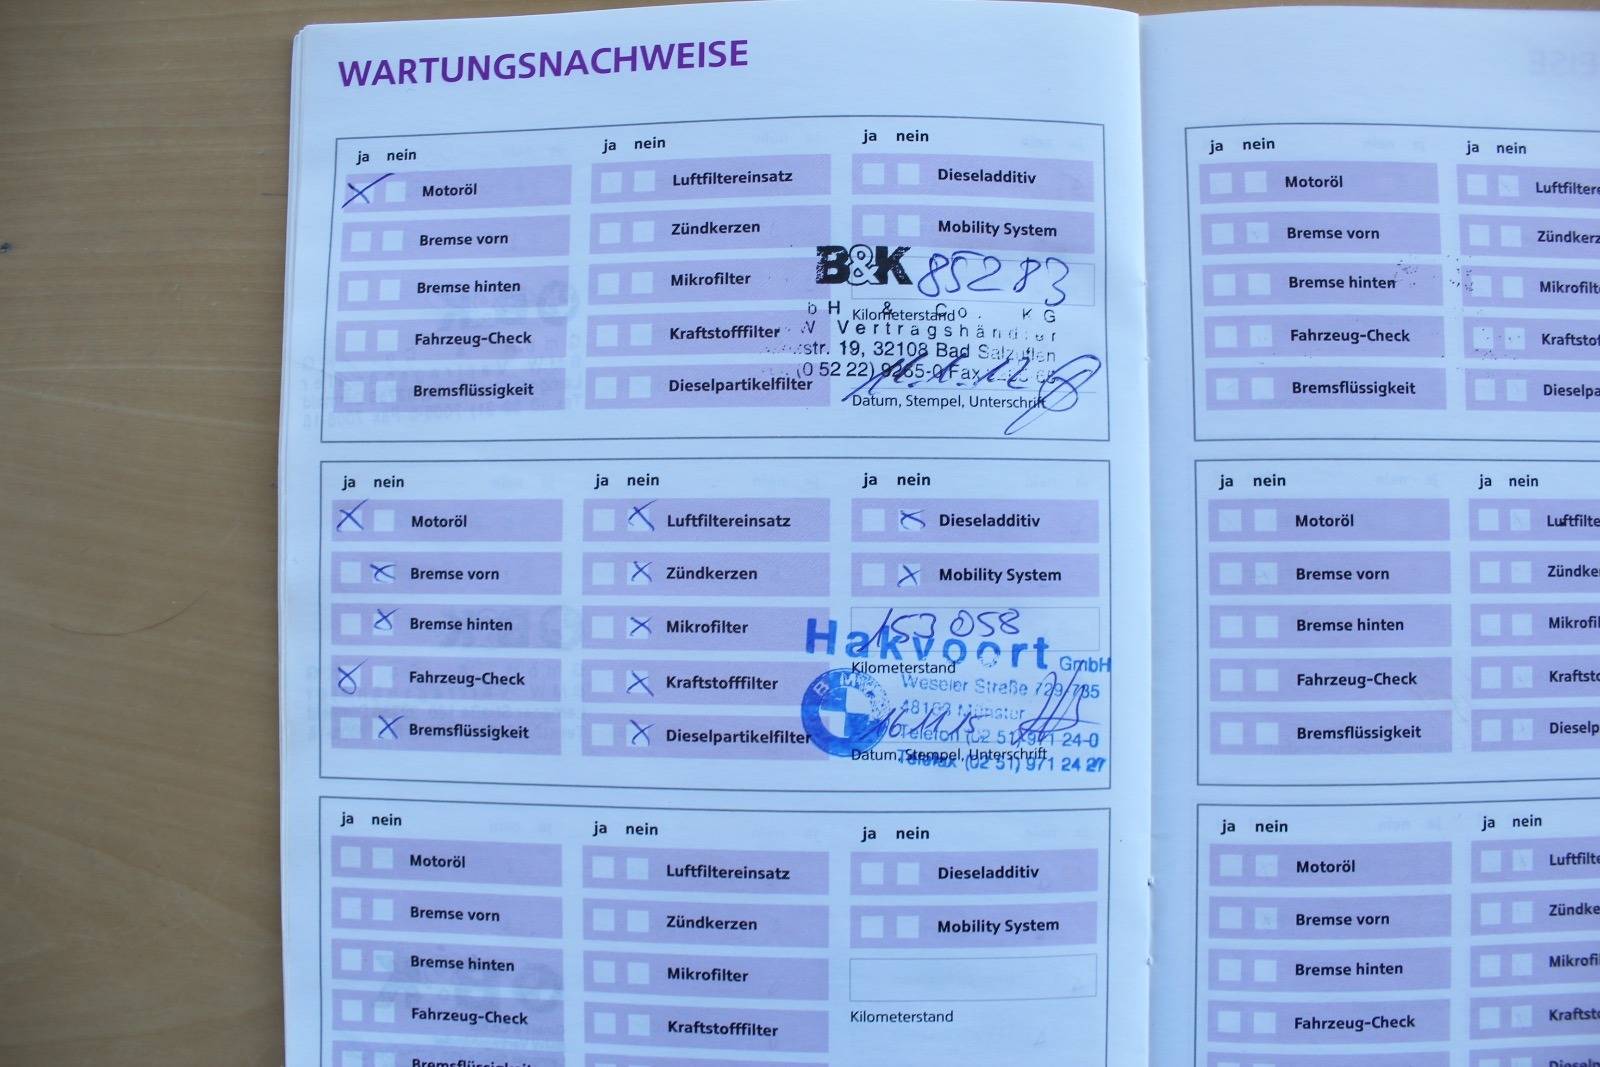 WARTUNGSNACHWEISE
ja nein
Motoröl
Bremse vorn
Bremse hinten
Fahrzeug-Check
Bremsflüssigkeit
ja nein
Luftfiltereinsatz
Zündkerzen
Mikrofilter
Kraftstofffilter
Dieselpartikelfilter
ja nein
Dieseladditiv
Mobility System
B&K 85283
Kilometerstand
bH & Co. KG
Vertragshändler
str. 19, 32108 Bad Salzuflen
(0 52 22) 9265-0 Fax
Datum, Stempel, Unterschrift
ja nein
Motoröl
Bremse vorn
Bremse hinten
Fahrzeug-Check
Bremsflüssigkeit
ja nein
Luftfiltereinsatz
Zündkerzen
Mikrofilter
Kraftstofffilter
Dieselpartikelfilter
ja nein
Dieseladditiv
Mobility System
153 058
Hakvoort GmbH
Kilometerstand
Weseler Straße 729/735
48163 Münster
16.11.15
Telefon (02 51) 971 24-0
Datum, Stempel, Unterschrift
Telefax (02 51) 971 24 27
ja nein
Motoröl
Bremse vorn
Bremse hinten
Fahrzeug-Check
Bremsflüssigkeit
ja nein
Luftfiltereinsatz
Zündkerzen
Mikrofilter
Kraftstofffilter
ja nein
Dieseladditiv
Mobility System
Kilometerstand
ja nein
Motoröl
Bremse vorn
Bremse hinten
Fahrzeug-Check
Bremsflüssigkeit
ja nein
Luftfiltere
Zündkerz
Mikrofilt
Kraftsto
Dieselpa
ja nein
Motoröl
Bremse vorn
Bremse hinten
Fahrzeug-Check
Bremsflüssigkeit
ja nein
Luftfilte
Zündke
Mikrofil
Kraftsto
Dieselp
ja nein
Motoröl
Bremse vorn
Bremse hinten
Fahrzeug-Check
ja nein
Luftfilt
Zündke
Mikrofi
Kraftst